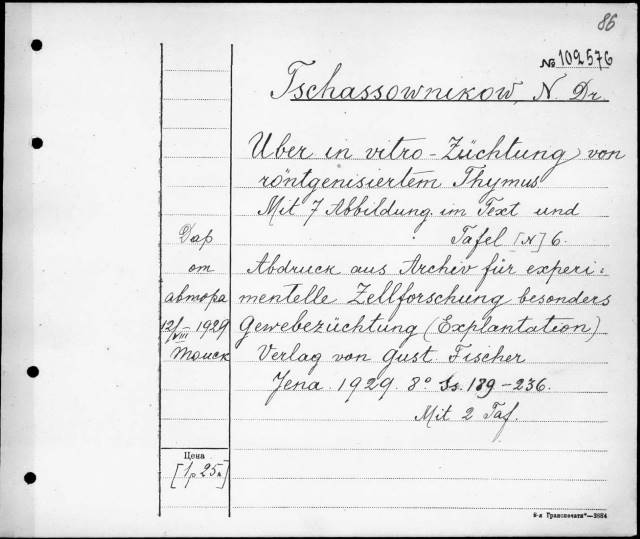 86
№ 102576
Tschassownikow, N. Dr.
Über in vitro-Züchtung von
röntgenisiertem Thymus
Mit 7 Abbildung. im Text und
Tafel [N] 6.
Дар
от
автора
12/VIII-1929
Томск
Abdruck aus Archiv für experi-
mentelle Zellforschung besonders
Gewebezüchtung (Explantation)
Verlag von Gust. Fischer
Jena. 1929. 8° Ss. 189-236.
Mit 2 Taf.
Цена
[1р 25к]
6-я Транспечати"—3684